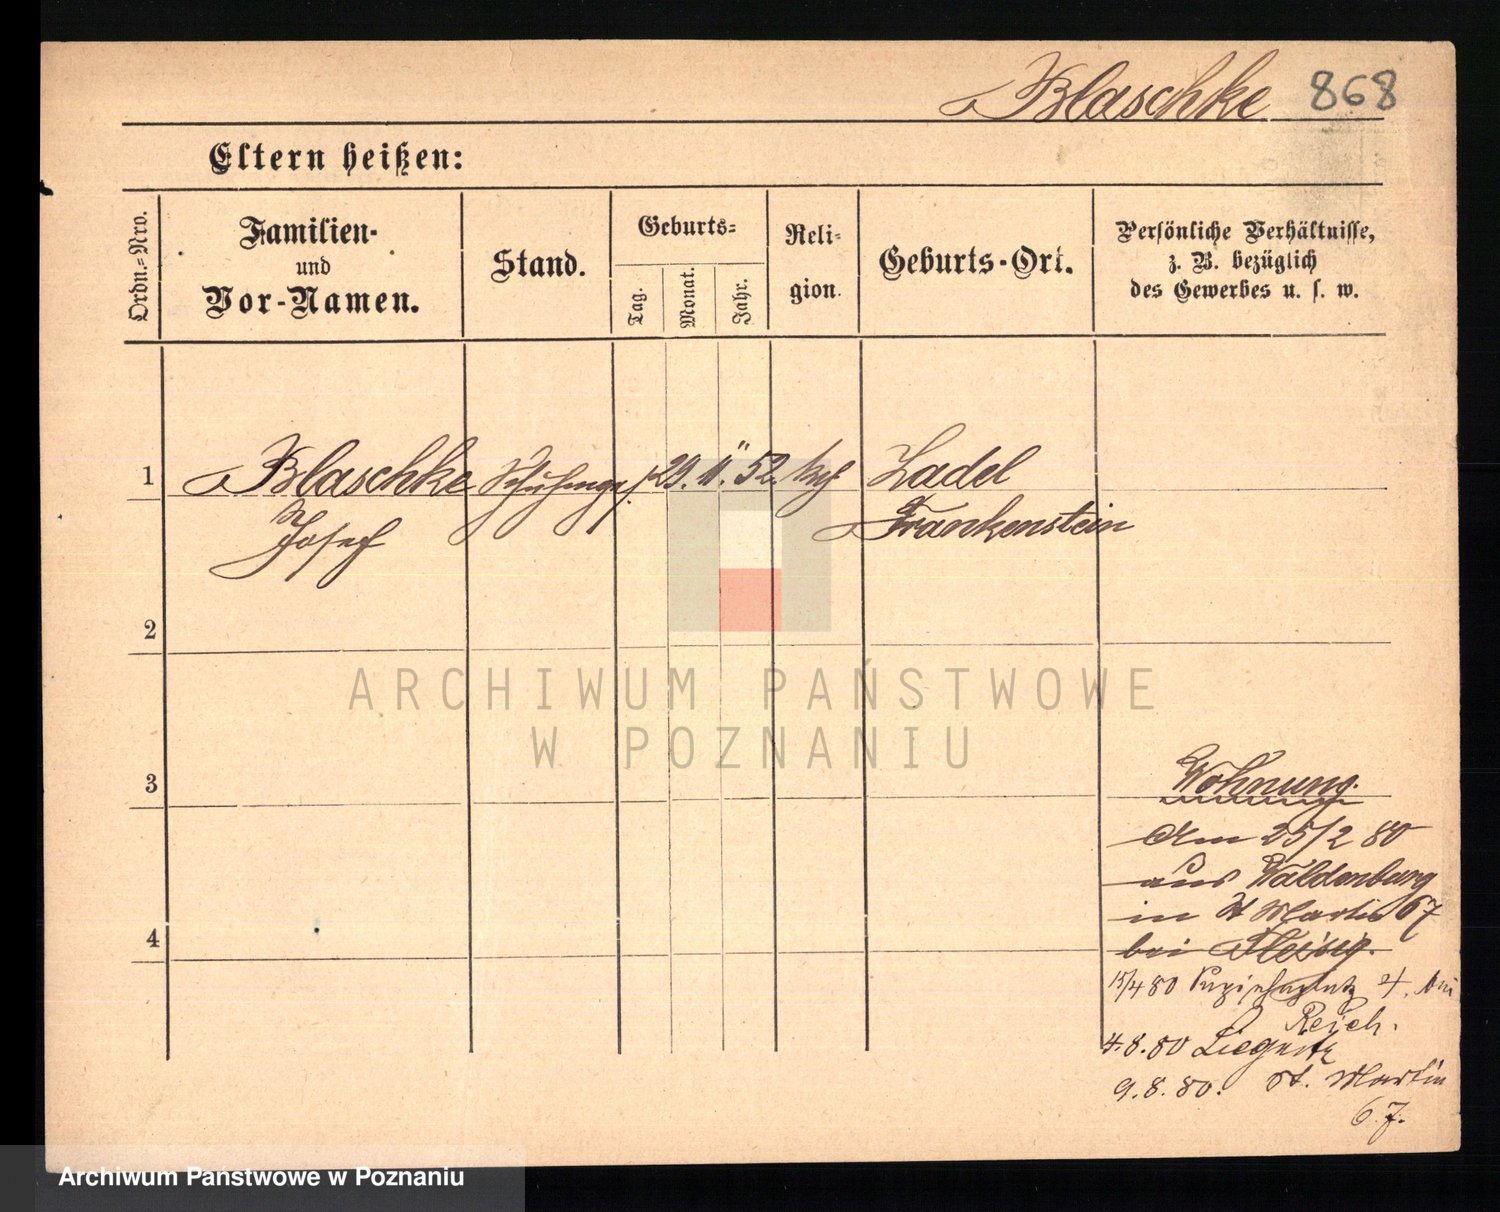 Blaschke 868
Eltern heißen:
Ordn.-Nro.
Familien-
und
Vor-Namen.
Stand.
Geburts-
Tag.
Monat.
Jahr.
Reli-
gion.
Geburts-Ort.
Persönliche Verhältnisse,
z. B. bezüglich
des Gewerbes u. s. w.
1 Blaschke 29. 11. 52. Zadel
Josef Frankenstein
2
3
4
Wohnung.
Am 25/2 80
aus Waldenburg
in St Martin 67
bei
15/4 80 4. bei
Reich.
4.8.80 Liegnitz
9.8.80. St. Martin
67.
ARCHIWUM PAŃSTWOWE
W POZNANIU
Archiwum Państwowe w Poznaniu